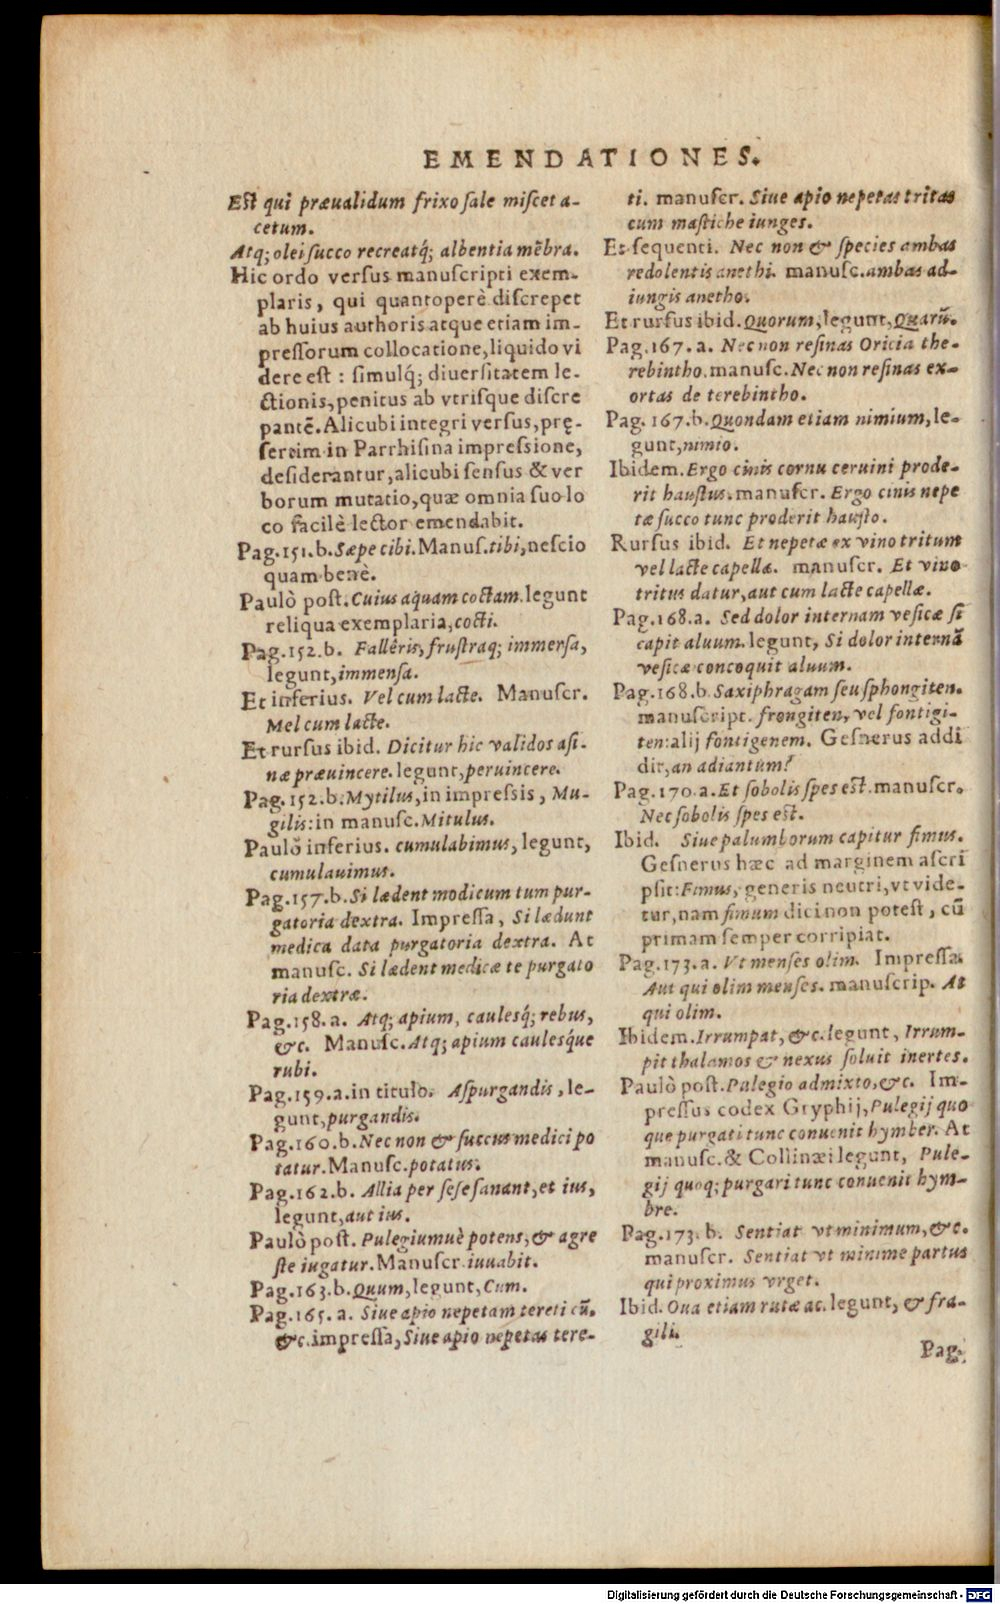 EMENDATIONES.
Est qui præualidum frixo sale miscet a-
cetum.
Atq; olei succo recreatq́; albentia mēbra.
Hic ordo versus manuscripti exem-
plaris, qui quantoperè discrepet
ab huius authoris atque etiam im-
pressorum collocatione, liquido vi
dere est : simulq́; diuersitatem le-
ctionis, penitus ab vtrisque discre
pantē. Alicubi integri versus, prę-
sertim in Parrhisina impressione,
desiderantur, alicubi sensus & ver
borum mutatio, quæ omnia suo lo
co facilè lector emendabit.
Pag. 151. b. Sæpe cibi. Manus. tibi, nescio
quam benè.
Paulò post. Cuius aquam coctam. legunt
reliqua exemplaria, cocti.
Pag. 152. b. Falleris, frustraq; immersa,
legunt, immensa.
Et inferius. Vel cum lacte. Manuscr.
Mel cum lacte.
Et rursus ibid. Dicitur hic validos asi-
næ præuincere. legunt, peruincere.
Pag. 152. b. Mytilus, in impressis, Mu-
gilis: in manusc. Mitulus.
Paulò inferius. cumulabimus, legunt,
cumulauimus.
Pag. 157. b. Si lædent modicum tum pur-
gatoria dextra. Impressa, Si lædunt
medica data purgatoria dextra. At
manusc. Si lædent medicæ te purgato
ria dextræ.
Pag. 158. a. Atq; apium, caulesq́; rebus,
&c. Manusc. Atq; apium caulesq́ue
rubi.
Pag. 159. a. in titulo. Aspurgandis, le-
gunt, purgandis.
Pag. 160. b. Nec non & succus medici po
tatur. Manusc. potatus.
Pag. 162. b. Allia per sese sanant, et ius,
legunt, aut ius.
Paulò post. Pulegiumuè potens, & agre
ste iugatur. Manuscr. iuuabit.
Pag. 163. b. Quum, legunt, Cum.
Pag. 165. a. Siue apio nepetam tereti cū.
&c. impressa, Siue apio nepetas tere-
ti. manuscr. Siue apio nepetas tritas
cum mastiche iunges.
Et sequenti. Nec non & species ambas
redolentis anethi. manusc. ambas ad-
iungis anetho.
Et rursus ibid. Quorum, legunt, Quarū.
Pag. 167. a. Nec non resinas Oricia the-
rebintho. manusc. Nec non resinas ex-
ortas de terebintho.
Pag. 167. b. Quondam etiam nimium, le-
gunt, nimio.
Ibidem. Ergo cinis cornu ceruini prode-
rit haustus. manuscr. Ergo cinis nepe
tæ succo tunc proderit hausto.
Rursus ibid. Et nepetæ ex vino tritum
vel lacte capellæ. manuscr. Et vino
tritus datur, aut cum lacte capellæ.
Pag. 168. a. Sed dolor internam vesicæ si
capit aluum. legunt, Si dolor internā
vesicæ concoquit aluum.
Pag. 168. b. Saxiphragam seu sphongiten.
manuscript. frongiten, vel fontigi-
ten: alij fontigenem. Gesnerus addi
dit, an adiantum?
Pag. 170. a. Et sobolis spes est. manuscr.
Nec sobolis spes est.
Ibid. Siue palumborum capitur fimus.
Gesnerus hæc ad marginem ascri
psit: Fimus, generis neutri, vt vide-
tur, nam fimum dici non potest, cū
primam semper corripiat.
Pag. 173. a. Vt menses olim. Impressa.
Aut qui olim menses. manuscrip. At
qui olim.
Ibidem. Irrumpat, &c. legunt, Irrum-
pit thalamos & nexus soluit inertes.
Paulò post. Pulegio admixto, &c. Im-
pressus codex Gryphij, Pulegij quo
que purgati tunc conuenit hymber. At
manusc. & Collinæi legunt, Pule-
gij quoq; purgari tunc conuenit hym-
bre.
Pag. 173. b. Sentiat vt minimum, &c.
manuscr. Sentiat vt minime partus
qui proximus vrget.
Ibid. Oua etiam rutæ ac. legunt, & fra-
gili.
Pag.
Digitalisierung gefördert durch die Deutsche Forschungsgemeinschaft - DFG